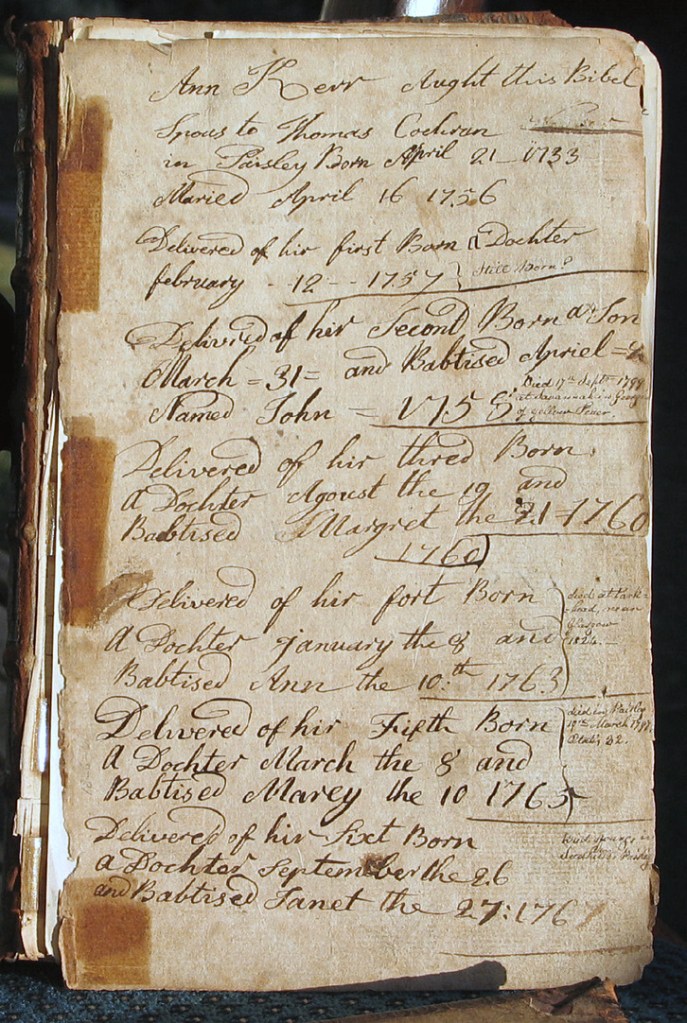 Ann Kerr Aught this Bibel
Spous to Thomas Cochran
in Paisley Born April 21 1733
Maried April 16 1756
Delivered of hir first Born a Dochter
february - 12 - 1757 } Still Born?
Delivred of hir Second Born a Son
March = 31 = and Babtised Apriel =
Named John = 1758
Died 17th Septr 1799
at Savannah in Georgia
of yellow Fever.
Delivered of hir thred Born
A Dochter Agoust the 19 and
Babtised Margret the 21 = 1760
1760
Delivered of hir fort Born
A Dochter January the 8 and
Babtised Ann the 10:th 1763
died at Park-
head, near
Glasgow
1824.
Delivered of hir Fifth Born
A Dochter March the 8 and
Babtised Marey the 10 1765
died in Paisley
19th March
Etat; 32.
Delivered of hir Sixt Born
a Dochter September the 26
and Babtised Janet the 27: 1767
Died young in